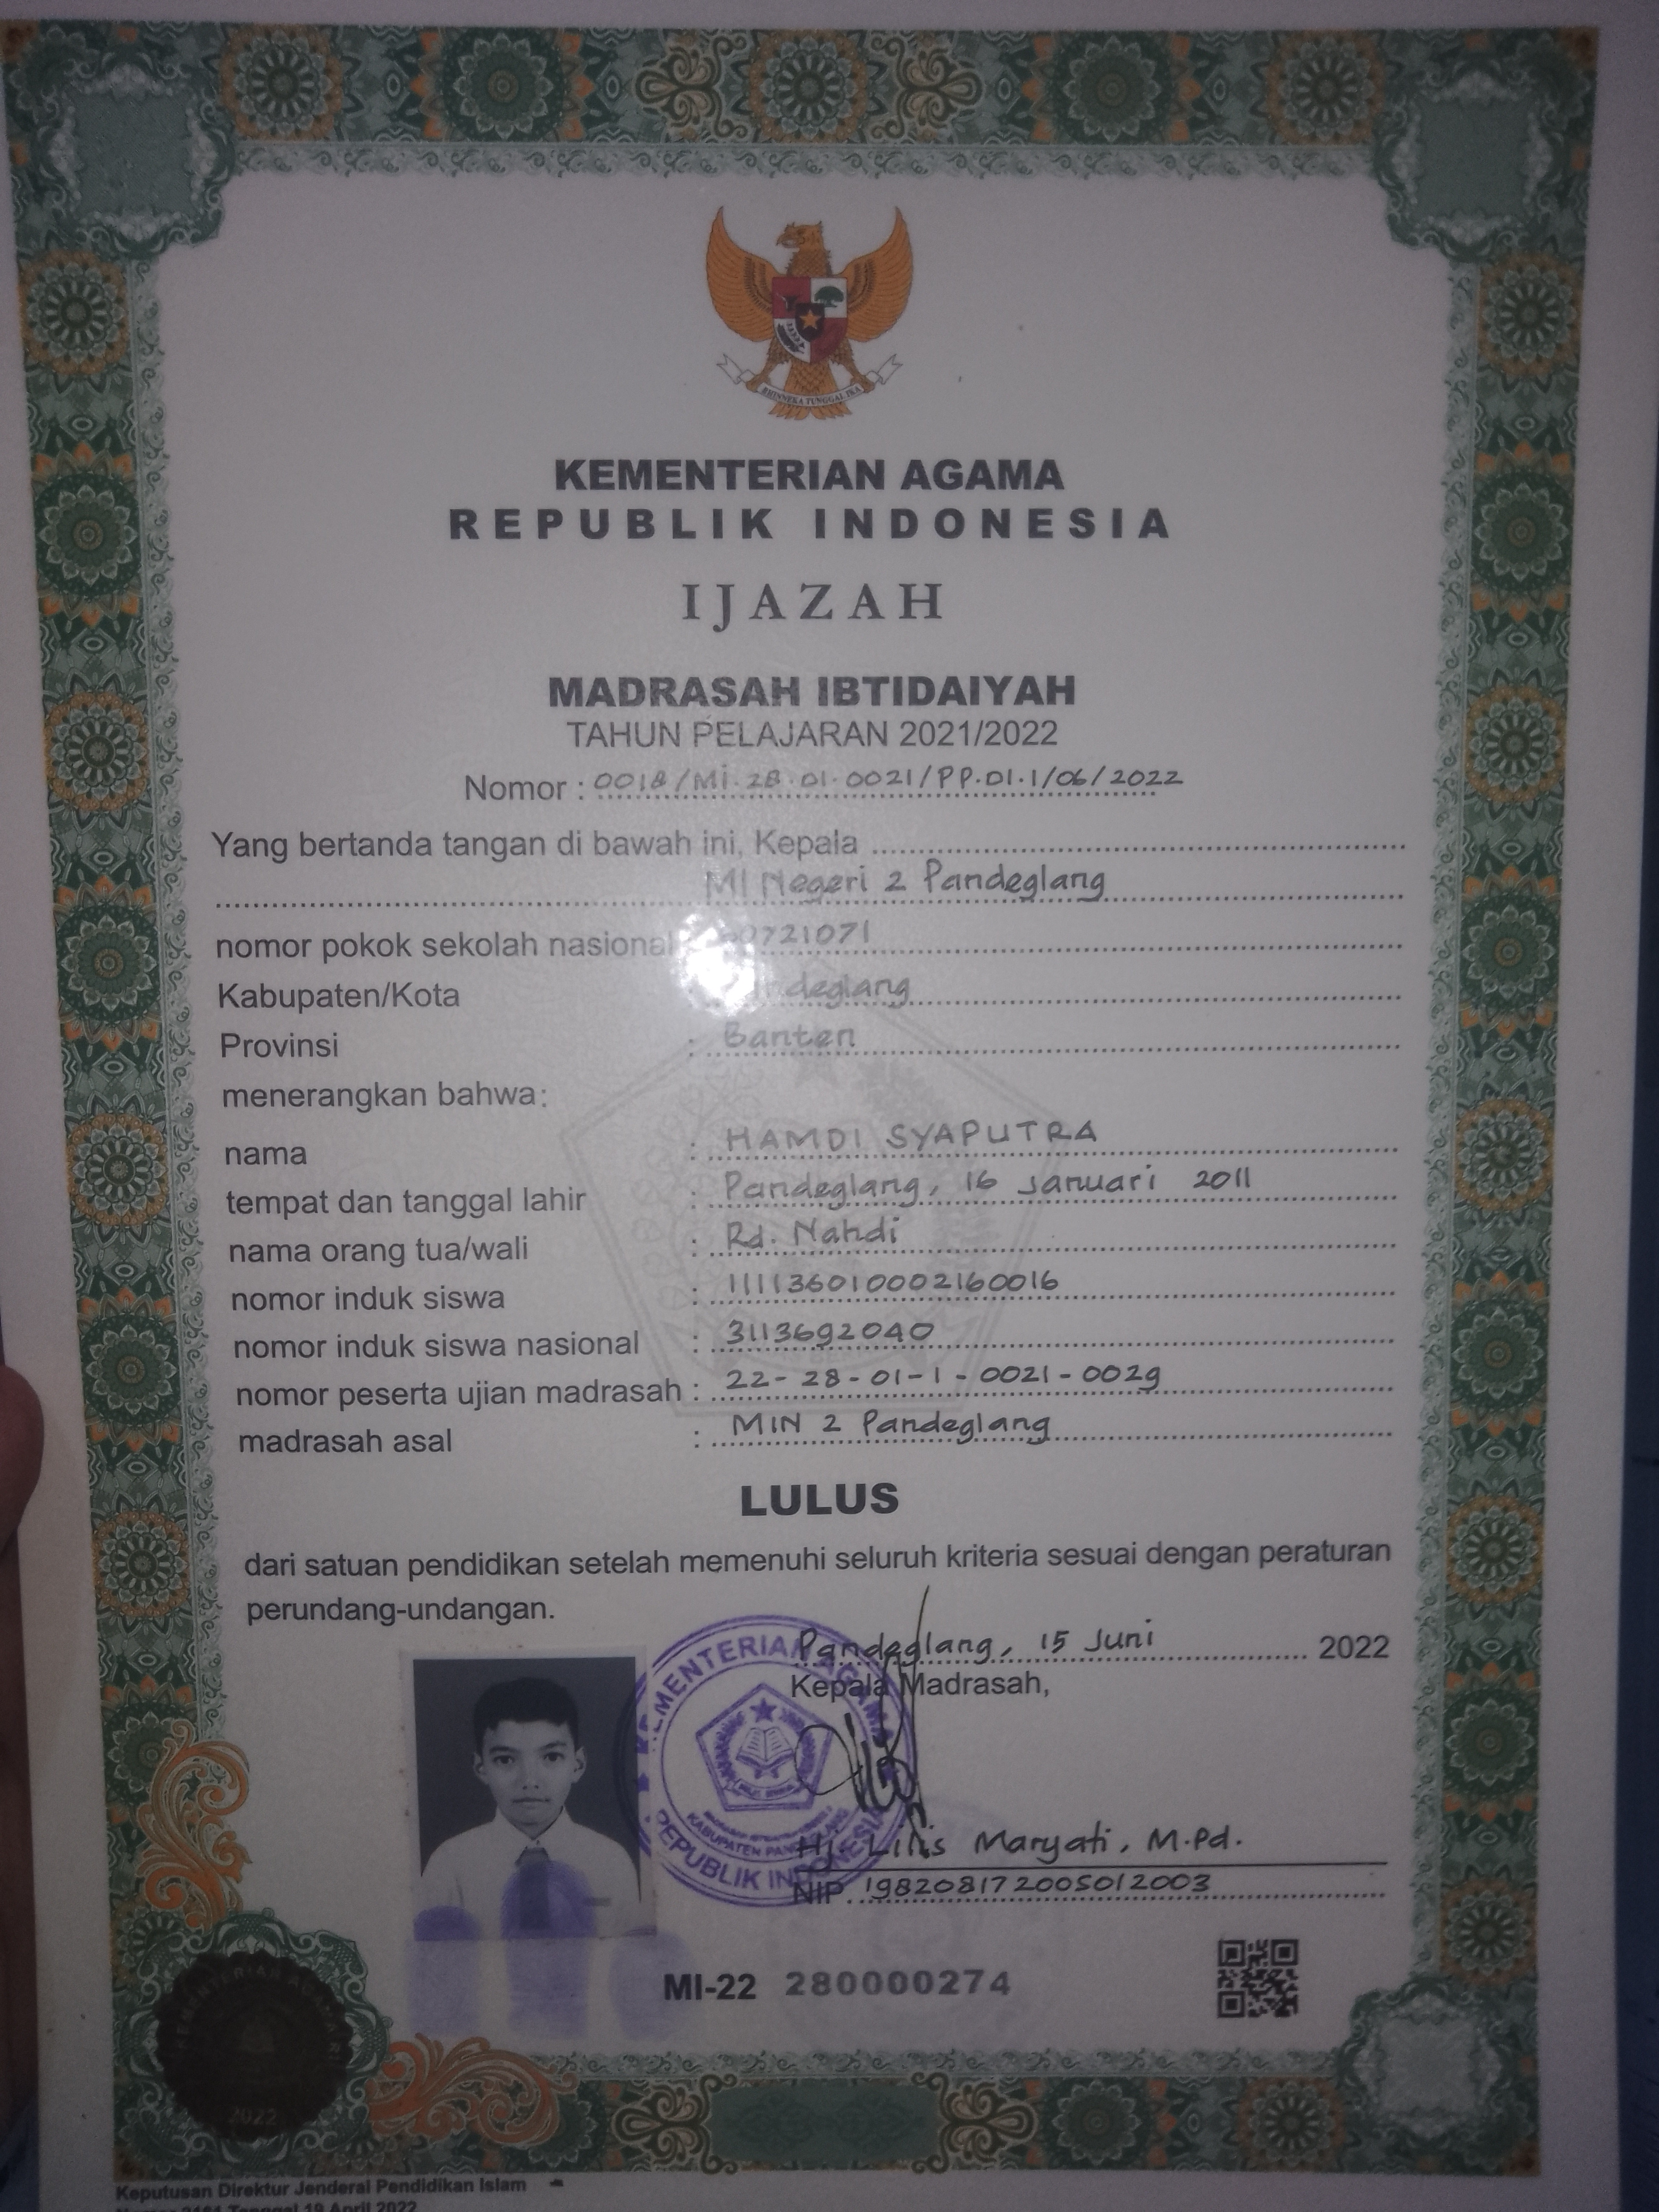 BHINNEKA TUNGGAL IKA
KEMENTERIAN AGAMA
REPUBLIK INDONESIA
IJAZAH
MADRASAH IBTIDAIYAH
TAHUN PELAJARAN 2021/2022
Nomor : 0018/MI.28.01.0021/PP.01.1/06/2022
Yang bertanda tangan di bawah ini, Kepala
MI Negeri 2 Pandeglang
nomor pokok sekolah nasional
Kabupaten/Kota
Provinsi : Banten
menerangkan bahwa:
nama : HAMDI SYAPUTRA
tempat dan tanggal lahir : Pandeglang, 16 Januari 2011
nama orang tua/wali : Rd. Nahdi
nomor induk siswa : 111136010002160016
nomor induk siswa nasional : 3113692040
nomor peserta ujian madrasah : 22-28-01-1-0021-0029
madrasah asal : MIN 2 Pandeglang
LULUS
dari satuan pendidikan setelah memenuhi seluruh kriteria sesuai dengan peraturan
perundang-undangan.
Pandeglang, 15 Juni 2022
Kepala Madrasah,
KEMENTERIAN AGAMA
REPUBLIK INDONESIA
Hj. Lilis Maryati, M.Pd.
NIP. 198208172005012003
MI-22 280000274
2022
Keputusan Direktur Jenderal Pendidikan Islam
Tanggal 19 April 2022